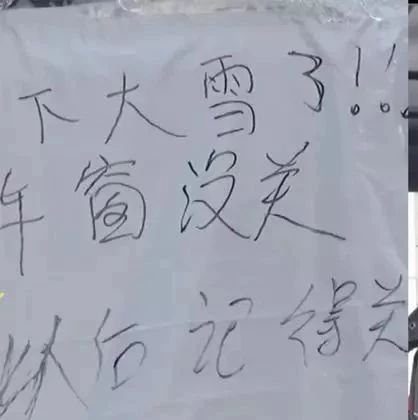 下大雪了!!
车窗没关
以后记得关